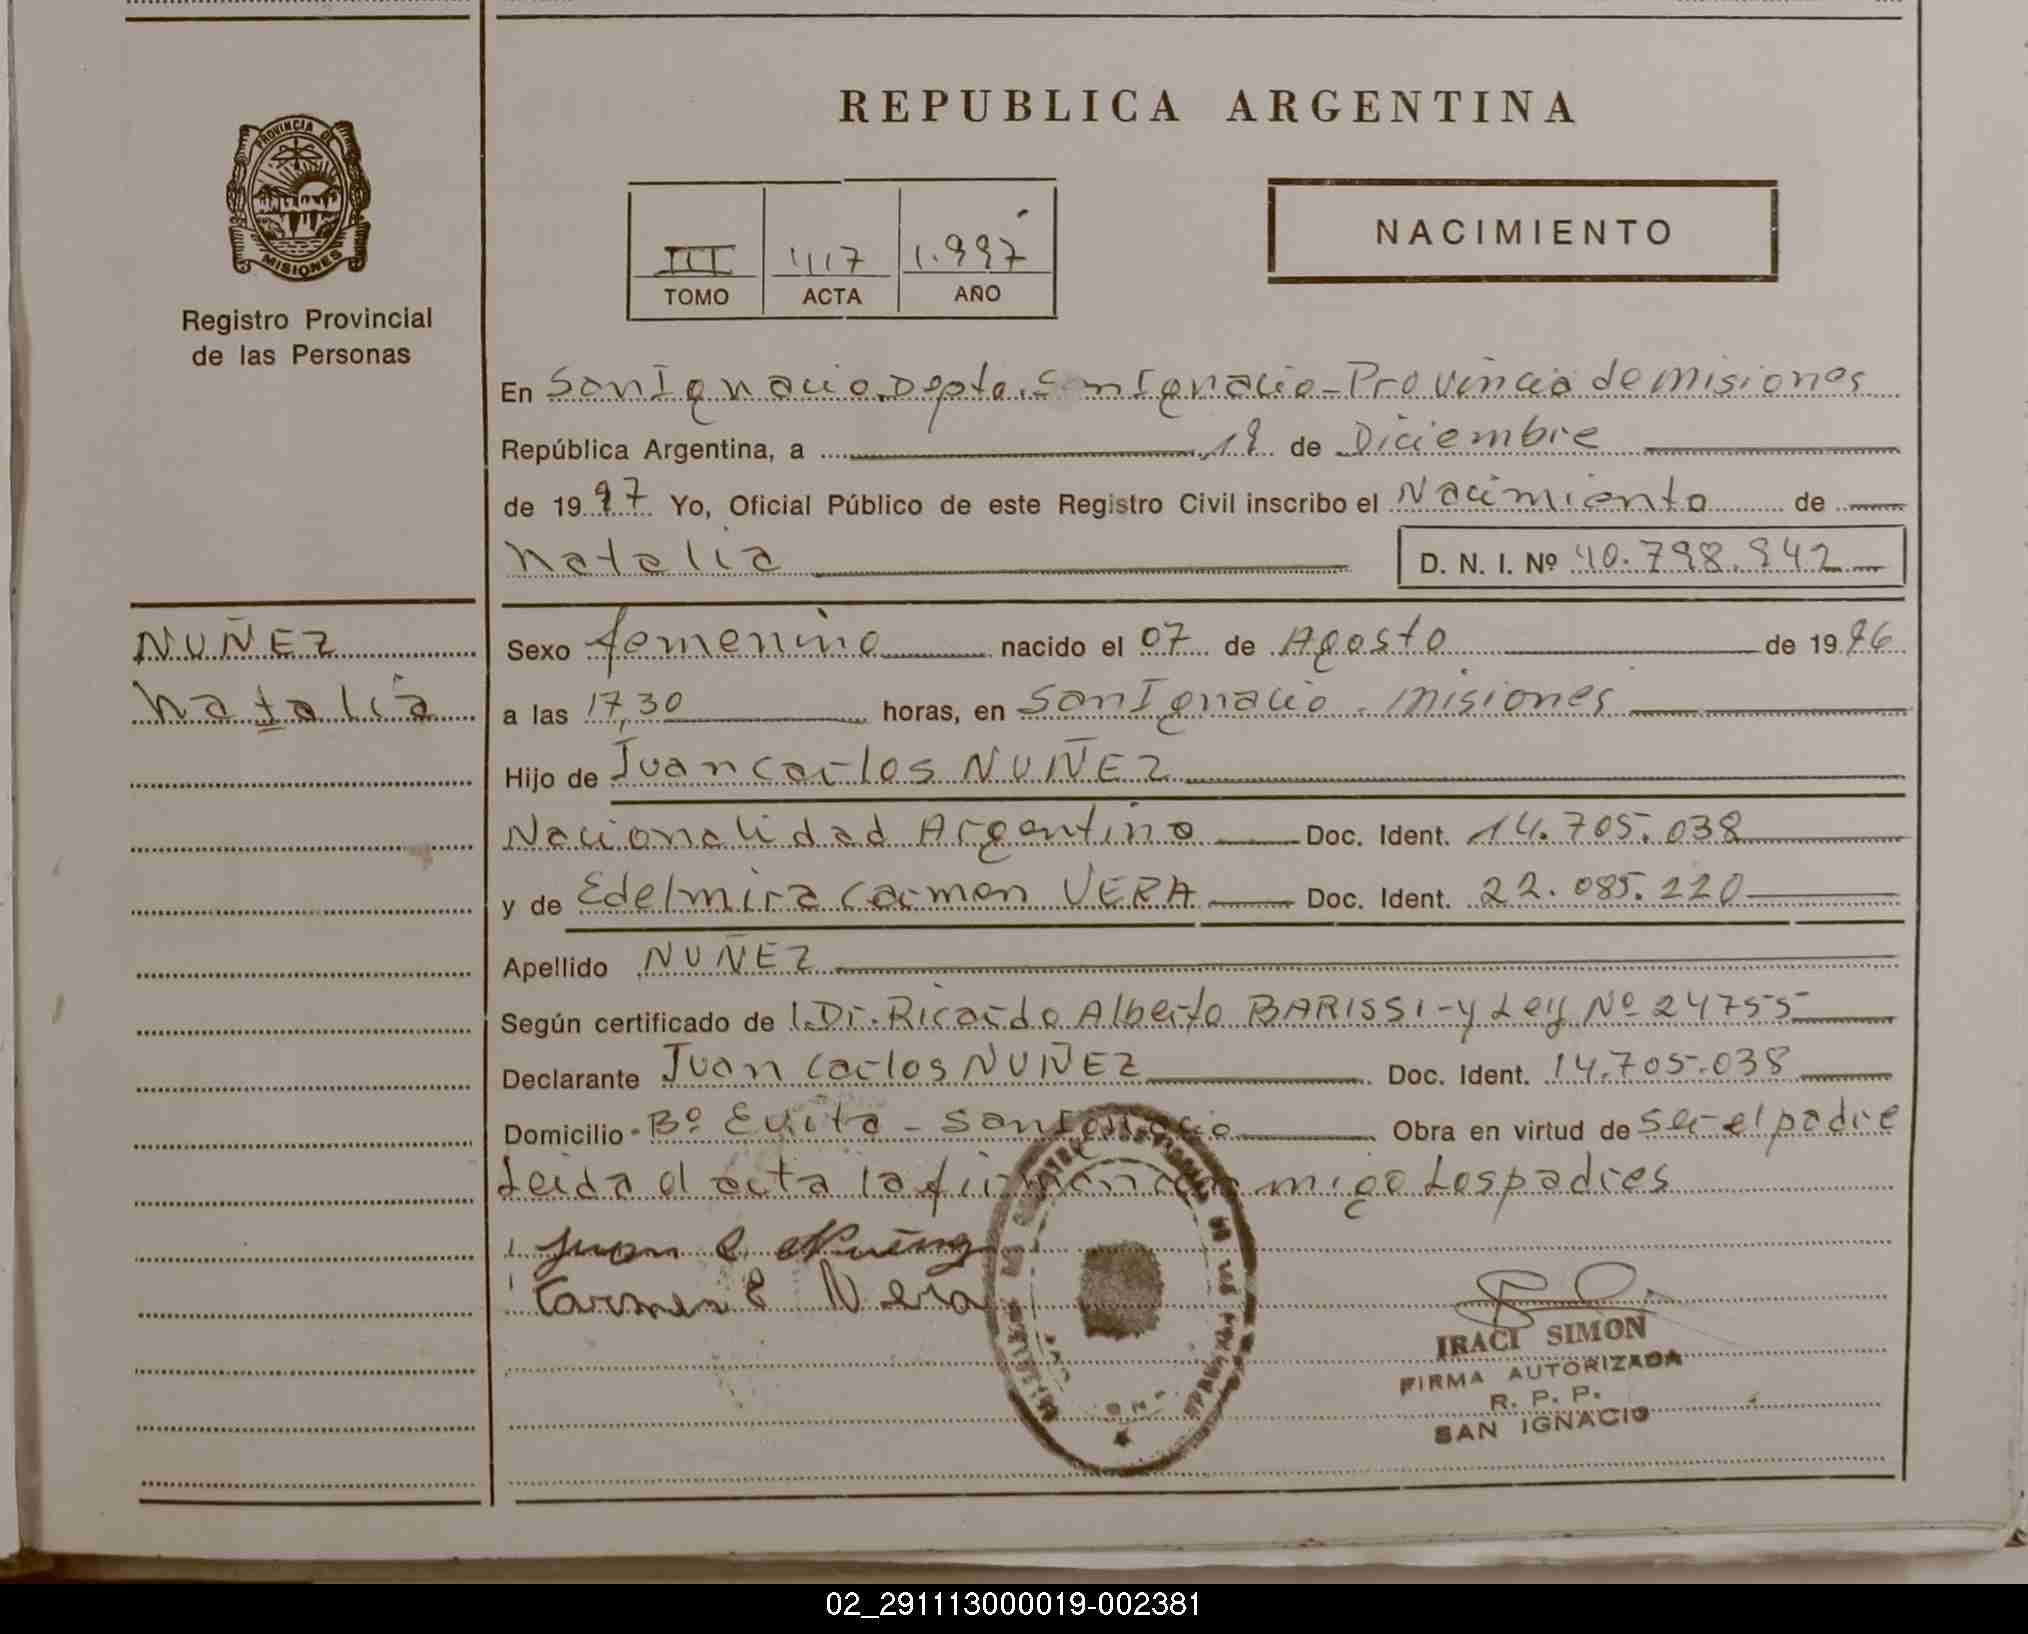 REPUBLICA ARGENTINA
PROVINCIA DE
MISIONES
Registro Provincial
de las Personas
III TOMO
417 ACTA
1.997 AÑO
NACIMIENTO
En San Ignacio. Depto. San Ignacio - Provincia de misiones
República Argentina, a 18 de Diciembre
de 1997 Yo, Oficial Público de este Registro Civil inscribo el Nacimiento de
Natalia D. N. I. Nº 40.798.942
NUÑEZ
Natalia
Sexo femenino nacido el 07 de Agosto de 1996
a las 17,30 horas, en San Ignacio - Misiones
Hijo de Juan Carlos NUÑEZ
Nacionalidad Argentina Doc. Ident. 14.705.038
y de Edelmira Carmen VERA Doc. Ident. 22.085.220
Apellido NUÑEZ
Según certificado de l. Dr. Ricardo Alberto BARISSI - y Ley Nº 24755
Declarante Juan Carlos NUÑEZ Doc. Ident. 14.705.038
Domicilio - Bº Evita - San Ignacio Obra en virtud de ser el padre
Leida el acta la firman con migo Los padres
Juan C. Nuñez
Carmen E Vera
IRACI SIMON
FIRMA AUTORIZADA
R. P. P.
SAN IGNACIO
02_291113000019-002381